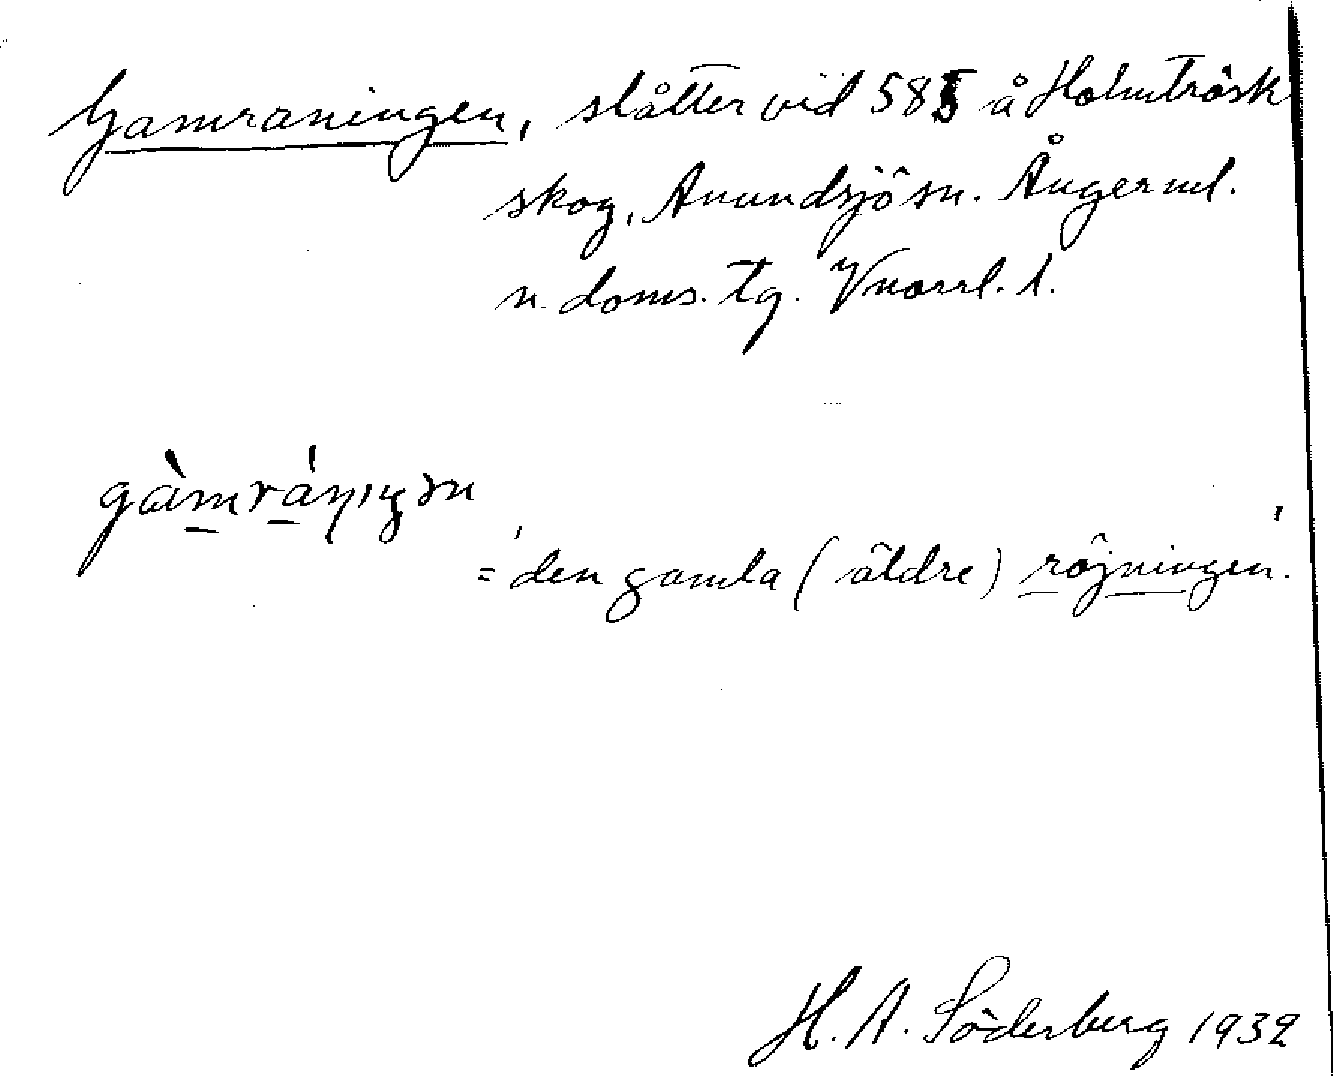 Gamraningen, slåtter vid 585 å Holmträsk
skog, Anundsjö sn. Ångerml.
n. doms. tg. Vnorrl. l.
gàmrániŋən
= 'den gamla (äldre) röjningen.'
H. A. Söderberg 1932